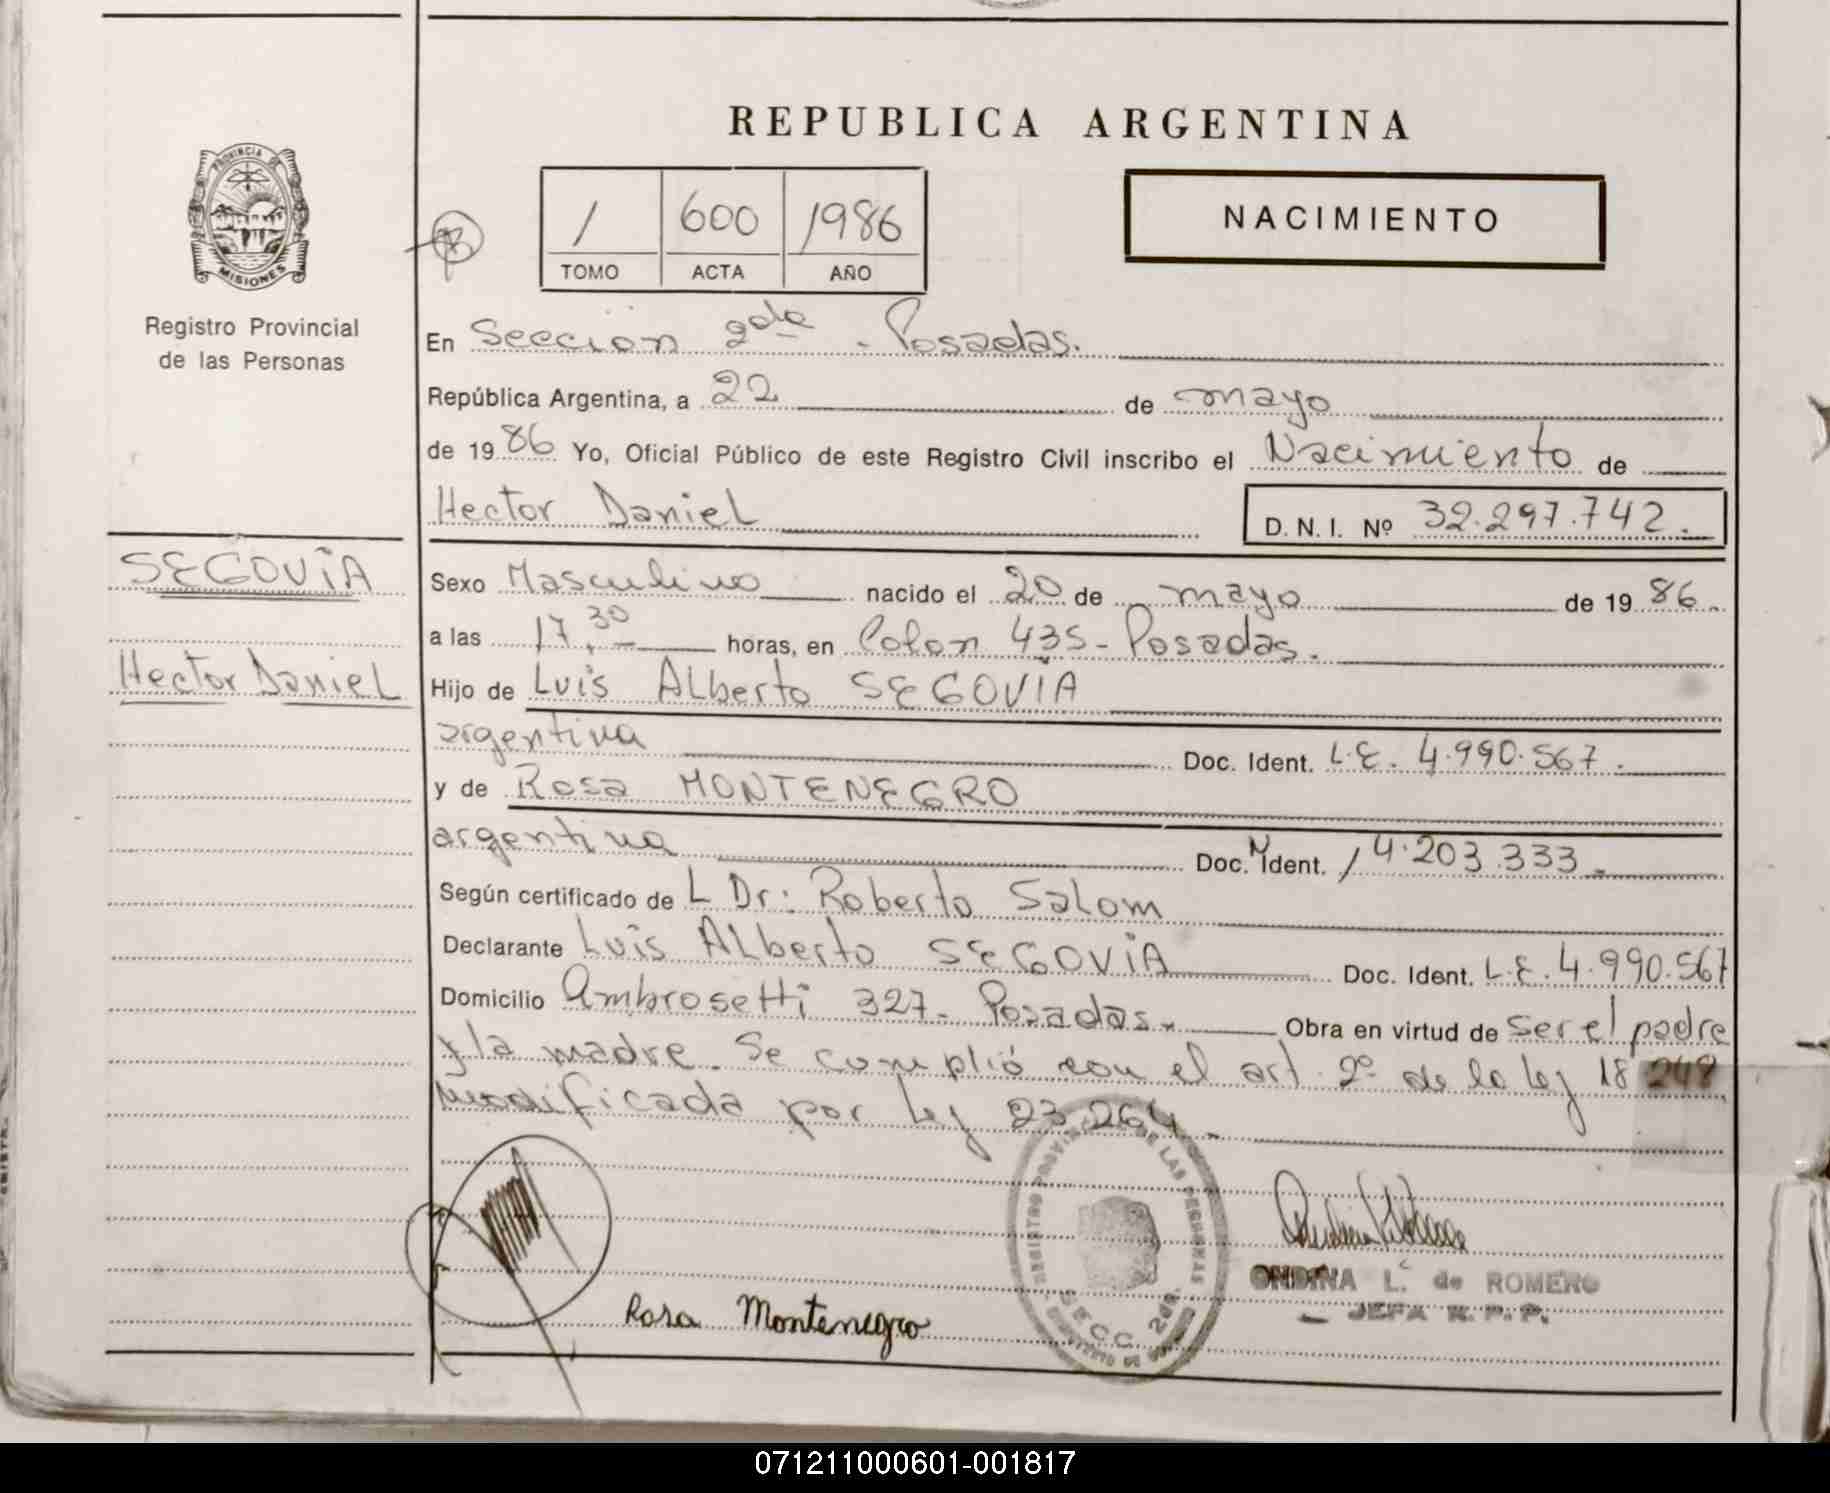 REPUBLICA ARGENTINA
PROVINCIA DE
MISIONES
Registro Provincial
de las Personas
1 600 1986
TOMO ACTA AÑO
NACIMIENTO
En Sección 2da - Posadas.
República Argentina, a 22 de mayo
de 1986 Yo, Oficial Público de este Registro Civil inscribo el Nacimiento de
Hector Daniel D.N.I. Nº 32.297.742.
SEGOViA
Hector Daniel
Sexo Masculino nacido el 20 de mayo de 1986.
a las 17,30 horas, en Colon 435 - Posadas.
Hijo de Luis Alberto SEGOViA
argentina Doc. Ident. L.E. 4.990.567.
y de Rosa MONTENEGRO
argentina Doc. N Ident. 14.203.333.
Según certificado de L Dr: Roberto Salom
Declarante Luis Alberto SEGOViA Doc. Ident. L.E. 4.990.567
Domicilio Ambrosetti 327 - Posadas. Obra en virtud de ser el padre
y la madre. Se cumplió con el art. 2º de la ley 18 248
modificada por ley 23.264.
REGISTRO PROVINCIAL DE LAS PERSONAS
SECC. 2da.
Rosa Montenegro
ONDINA L. de ROMERO
JEFA R.P.P.
071211000601-001817